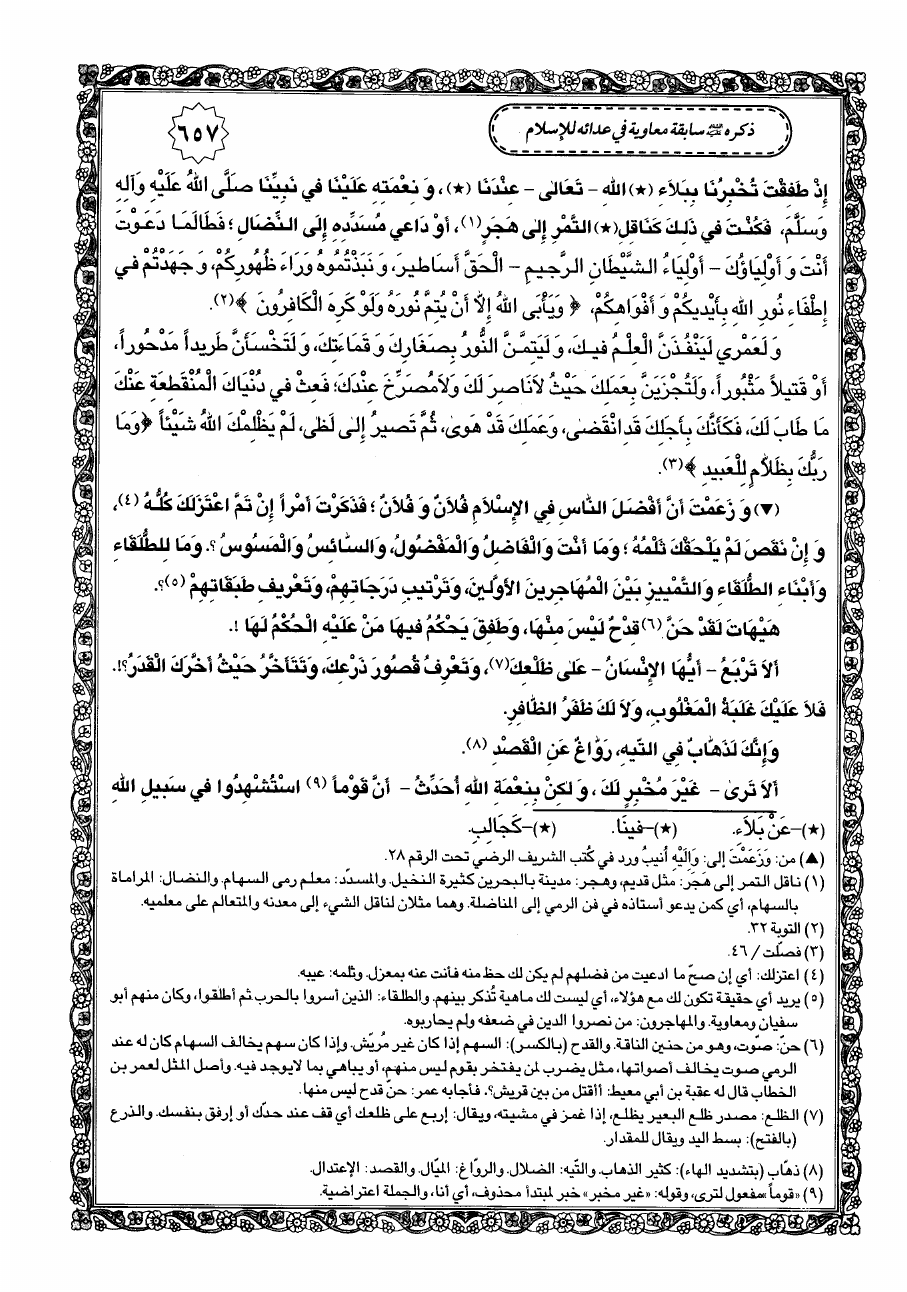 ذكره ﷺ سابقة معاوية في عدائه للإسلام
٦٥٧
إِذْ طَفِقْتَ تُخْبِرُنَا بِبَلَاءِ (★) اللهِ - تَعَالىٰ - عِنْدَنَا (★)، وَ نِعْمَتِهِ عَلَيْنَا في نَبِيِّنَا صَلَّى اللهُ عَلَيْهِ وَآلِهِ
وَسَلَّمَ، فَكُنْتَ في ذٰلِكَ كَنَاقِلِ (★) التَّمْرِ إِلىٰ هَجَرٍ (١)، أَوْ دَاعي مُسَدِّدِهِ إِلَى النِّضَالِ ؛ فَطَالَمَا دَعَوْتَ
أَنْتَ وَ أَوْلِيَاؤُكَ - أَوْلِيَاءُ الشَّيْطَانِ الرَّجيمِ - الْحَقَّ أَسَاطيرَ، وَ نَبَذْتُمُوهُ وَرَاءَ ظُهُورِكُمْ، وَ جَهَدْتُمْ في
إِطْفَاءِ نُورِ اللهِ بِأَيْديكُمْ وَ أَفْوَاهِكُمْ، ﴿ وَيَأْبَى اللهُ إِلَّا أَنْ يُتِمَّ نُورَهُ وَلَوْ كَرِهَ الْكَافِرُونَ ﴾ (٢).
وَ لَعَمْري لَيَنْفُذَنَّ الْعِلْمُ فيكَ، وَ لَيَتِمَنَّ النُّورُ بِصَغَارِكَ وَ قَمَاءَتِكَ، وَ لَتَخْسَأَنَّ طَريداً مَدْحُوراً،
أَوْ قَتيلاً مَثْبُوراً، وَلَتُجْزَيَنَّ بِعَمَلِكَ حَيْثُ لَا نَاصِرَ لَكَ وَلَا مُصَرِّخَ عِنْدَكَ؛ فَعِثْ في دُنْيَاكَ الْمُنْقَطِعَةِ عَنْكَ
مَا طَابَ لَكَ، فَكَأَنَّكَ بِأَجَلِكَ قَدِ انْقَضىٰ، وَعَمَلِكَ قَدْ هَوىٰ، ثُمَّ تَصيرُ إِلىٰ لَظىٰ، لَمْ يَظْلِمْكَ اللهُ شَيْئاً ﴿وَمَا
رَبُّكَ بِظَلَّامٍ لِلْعَبيدِ ﴾ (٣).
(▼) وَ زَعَمْتَ أَنَّ أَفْضَلَ النَّاسِ فِي الإِسْلَامِ فُلَانٌ وَ فُلَانٌ ؛ فَذَكَرْتَ أَمْراً إِنْ تَمَّ اعْتَزَلَكَ كُلُّهُ (٤)،
وَ إِنْ نَقَصَ لَمْ يَلْحَقْكَ ثَلْمُهُ ؛ وَمَا أَنْتَ وَالْفَاضِلُ وَالْمَفْضُولُ، وَالسَّائِسُ وَالْمَسُوسُ ؟. وَمَا لِلطُّلَقَاءِ
وَأَبْنَاءِ الطُّلَقَاءِ وَالتَّمْييزِ بَيْنَ الْمُهَاجِرينَ الأَوَّلينَ، وَتَرْتيبِ دَرَجَاتِهِمْ، وَتَعْريفِ طَبَقَاتِهِمْ (٥)؟.
هَيْهَاتَ لَقَدْ حَنَّ (٦) قِدْحٌ لَيْسَ مِنْهَا، وَطَفِقَ يَحْكُمُ فيهَا مَنْ عَلَيْهِ الْحُكْمُ لَهَا !.
أَلَا تَرْبَعُ - أَيُّهَا الإِنْسَانُ - عَلىٰ ظَلْعِكَ (٧)، وَتَعْرِفُ قُصُورَ ذَرْعِكَ، وَتَتَأَخَّرُ حَيْثُ أَخَّرَكَ الْقَدَرُ؟!.
فَلَا عَلَيْكَ غَلَبَةُ الْمَغْلُوبِ، وَلَا لَكَ ظَفَرُ الظَّافِرِ.
وَإِنَّكَ لَذَهَّابٌ فِي التّيهِ، رَوَّاغٌ عَنِ الْقَصْدِ (٨).
أَلَا تَرىٰ - غَيْرَ مُخْبِرٍ لَكَ، وَ لٰكِنْ بِنِعْمَةِ اللهِ أُحَدِّثُ - أَنَّ قَوْماً (٩) اسْتُشْهِدُوا في سَبيلِ اللهِ
(★)-عَنْ بَلَاءِ. (★)-فينَا. (★)-كَجَالِبِ.
(▲) من: وَزَعَمْتَ إلى: وَإِلَيْهِ أُنيبُ ورد في كُتب الشريف الرضي تحت الرقم ٢٨.
(١) ناقل التمر إلى هَجَر: مثل قديم، وهجر: مدينة بالبحرين كثيرة النخيل. والمسدّد: معلم رمى السهام. والنضال: المراماة
بالسهام، أي كمن يدعو أستاذه في فن الرمي إلى المناضلة. وهما مثلان لناقل الشيء إلى معدنه والمتعالم على معلميه.
(٢) التوبة ٣٢.
(٣) فصلت / ٤٦.
(٤) اعتزلك: أي إن صحّ ما ادعيت من فضلهم لم يكن لك حظ منه فأنت عنه بمعزل. وثلمه: عيبه.
(٥) يريد أي حقيقة تكون لك مع هؤلاء، أي ليست لك ماهية تُذكر بينهم. والطلقاء: الذين أسروا بالحرب ثم أطلقوا، وكان منهم أبو
سفيان ومعاوية. والمهاجرون: من نصروا الدين في ضعفه ولم يحاربوه.
(٦) حنّ: صوّت، وهو من حنين الناقة. والقدح (بالكسر): السهم إذا كان غير مُريّش. وإذا كان سهم يخالف السهام كان له عند
الرمي صوت يخالف أصواتها، مثل يضرب لمن يفتخر بقوم ليس منهم، أو يباهي بما لايوجد فيه. وأصل المثل لعمر بن
الخطاب قال له عقبة بن أبي معيط: أأقتل من بين قريش؟. فأجابه عمر: حنّ قدح ليس منها.
(٧) الظلع: مصدر ظلع البعير يظلع، إذا غمز في مشيته، ويقال: إربع على ظلعك أي قف عند حدّك أو إرفق بنفسك. والذرع
(بالفتح): بسط اليد ويقال للمقدار.
(٨) ذهّاب (بتشديد الهاء): كثير الذهاب. والتّيه: الضلال. والروّاغ: الميّال. والقصد: الإعتدال.
(٩) «قوماً» مفعول لترى، وقوله: «غير مخبر» خبر لمبتدأ محذوف، أي أنا، والجملة اعتراضية.